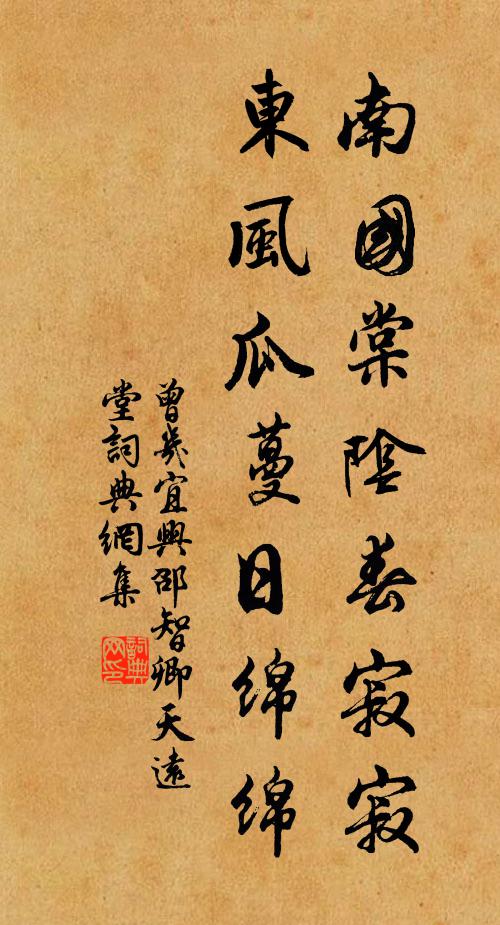 南國棠陰春寂寂
東風瓜蔓日綿綿
曾幾宜興邵智卿天遠
堂詞典網集
詞典網印